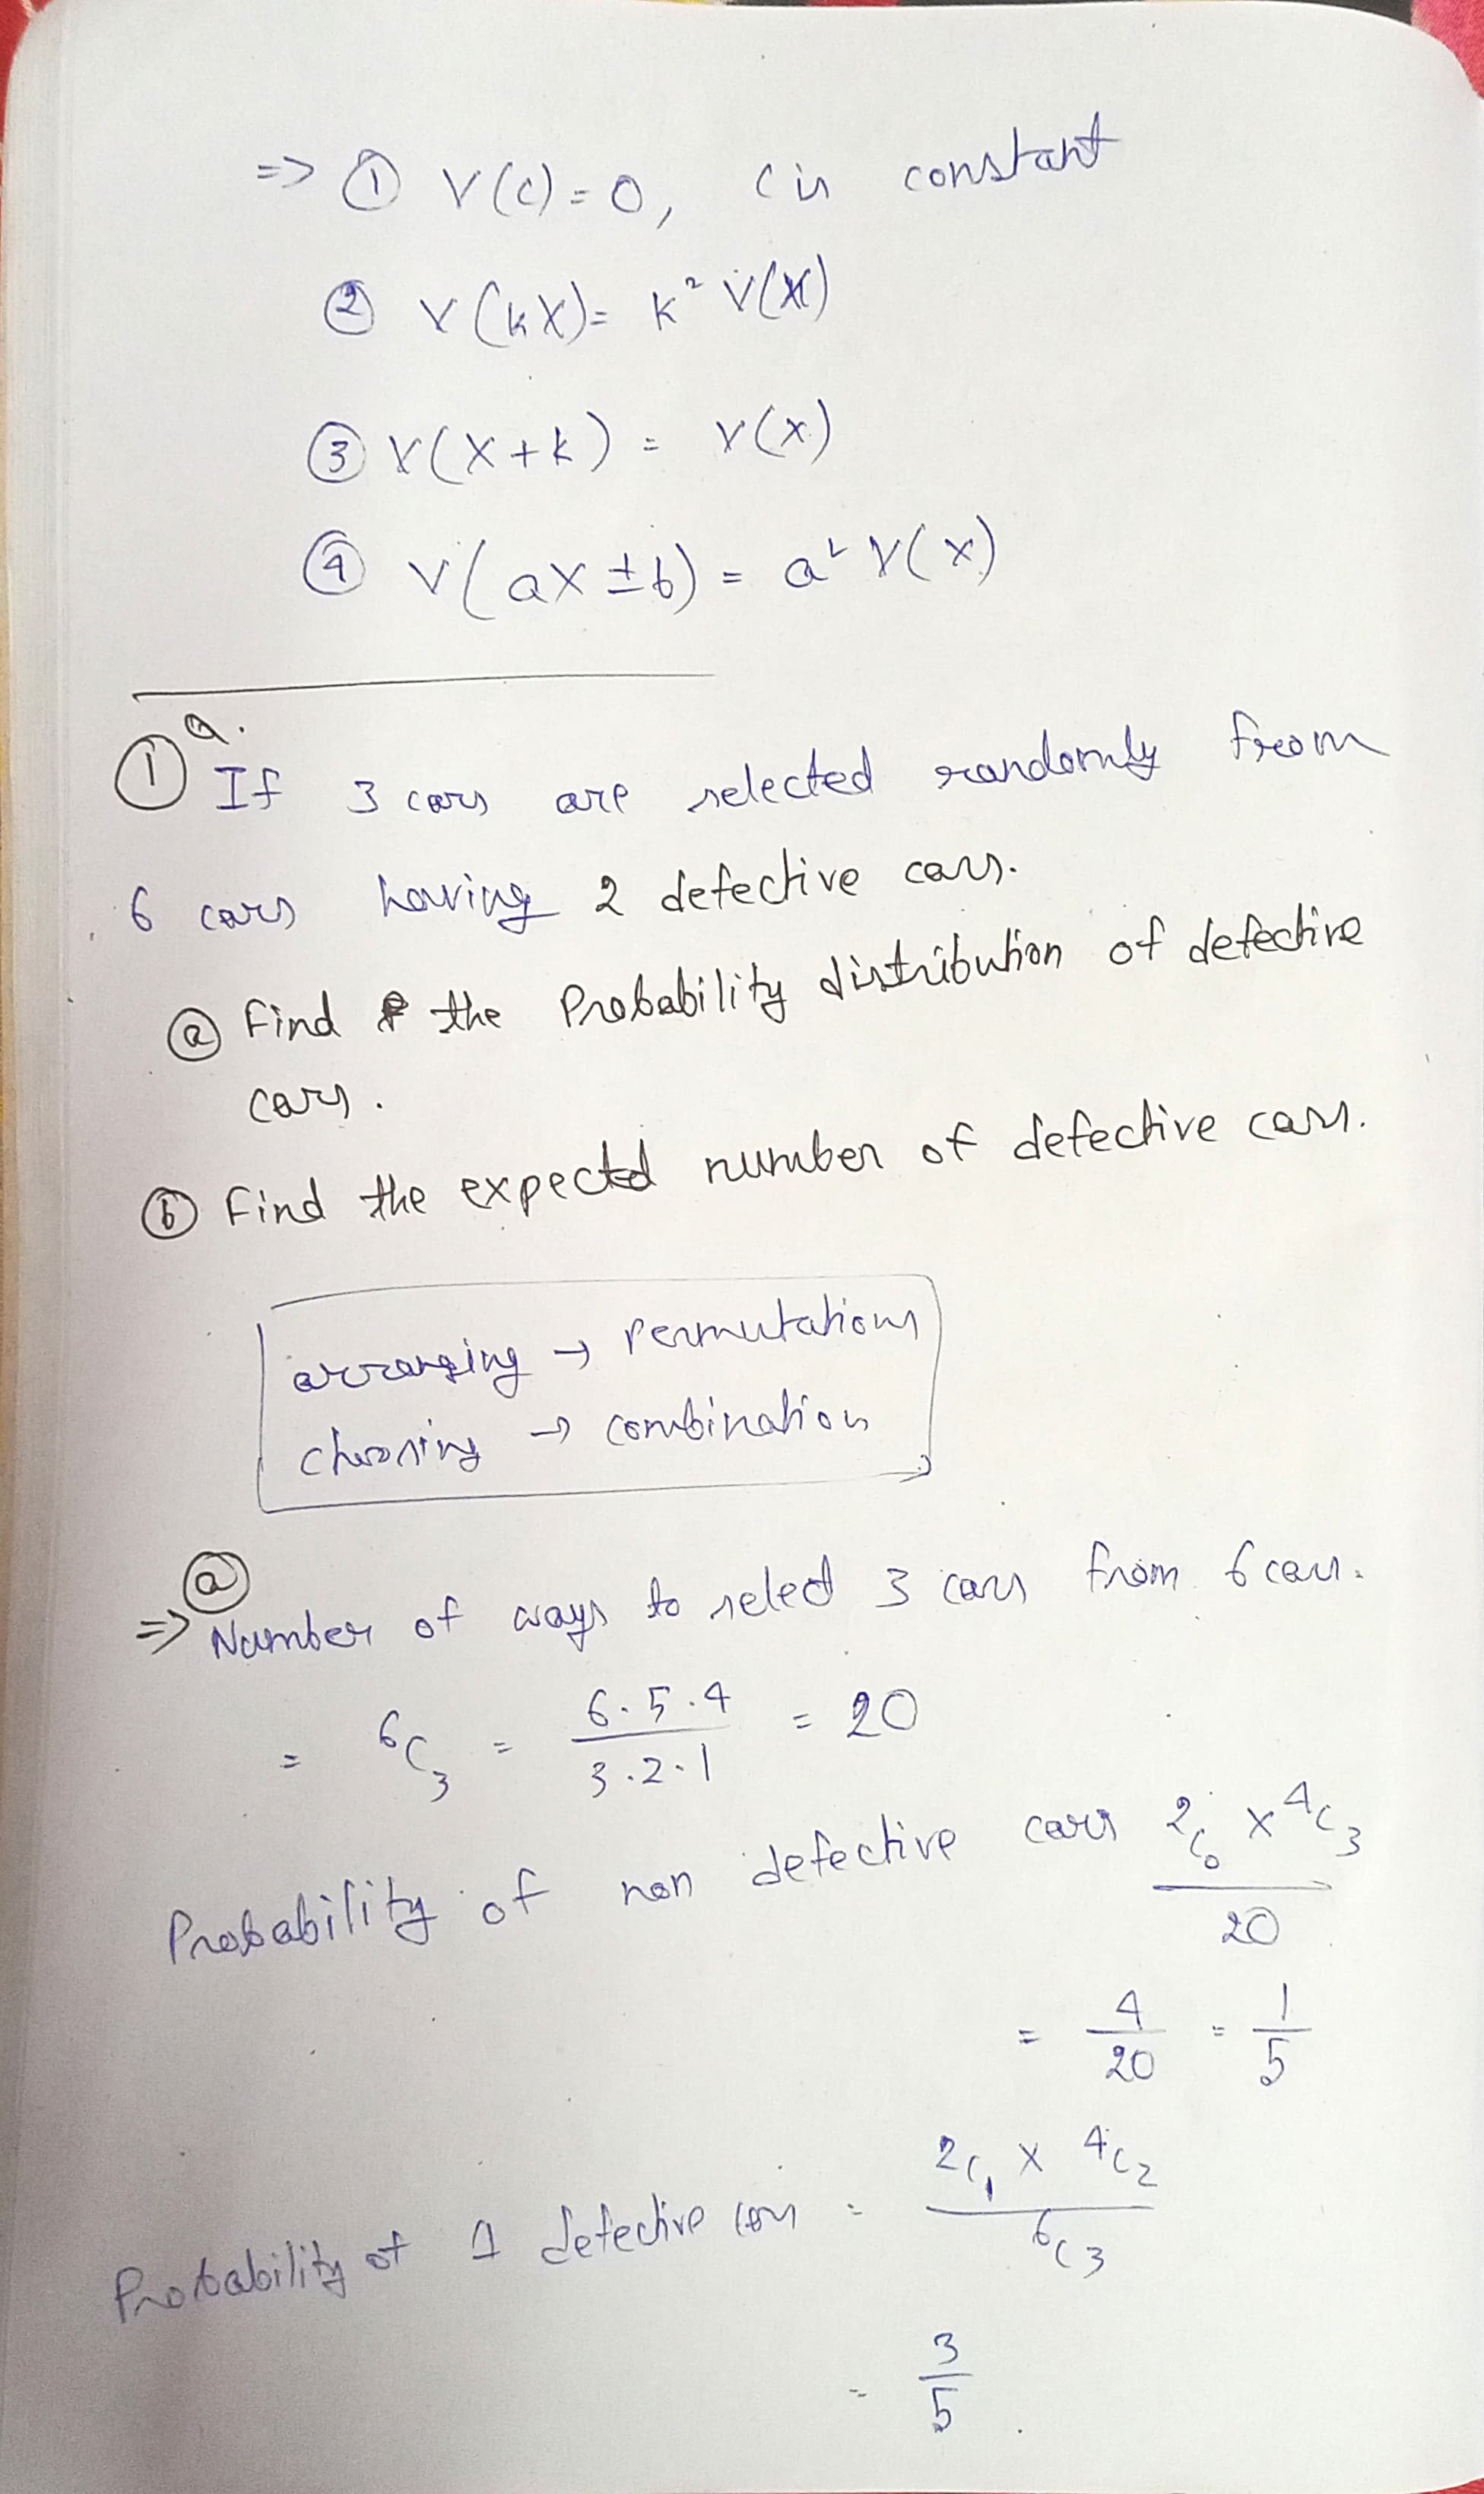 => ① V(C) = 0, C is constant
② V(kX) = k² V(X)
③ V(X+k) = V(X)
④ V(aX ± b) = a² V(X)
① Q.
If 3 cars are selected randomly from
6 cars having 2 defective cars.
ⓐ Find the Probability distribution of defective
cars.
ⓑ Find the expected number of defective cars.
arranging → Permutations
choosing → combination
ⓐ
=> Number of ways to select 3 cars from 6 cars.
= ⁶C₃ = 6.5.4 / 3.2.1 = 20
Probability of non defective cars ²C₀ × ⁴C₃ / 20
= 4/20 = 1/5
Probability of 1 defective cars = ²C₁ × ⁴C₂ / ⁶C₃
= 3/5.